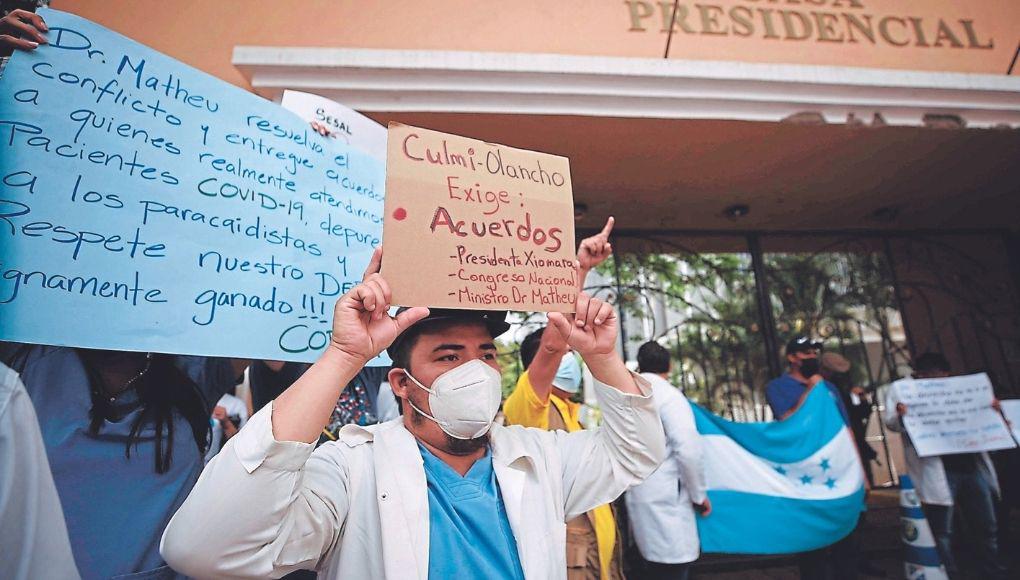 PRESIDENCIAL
Dr. Matheu resuelva el
conflicto y entregue acuerdos
a quienes realmente atendimos
Pacientes COVID-19, depure
a los paracaidistas y
Respete nuestro De
gnamente ganado!!!
SESAL
Culmi-Olancho
Exige:
Acuerdos
-Presidenta Xiomara
-Congreso Nacional
-Ministro Dr Matheu